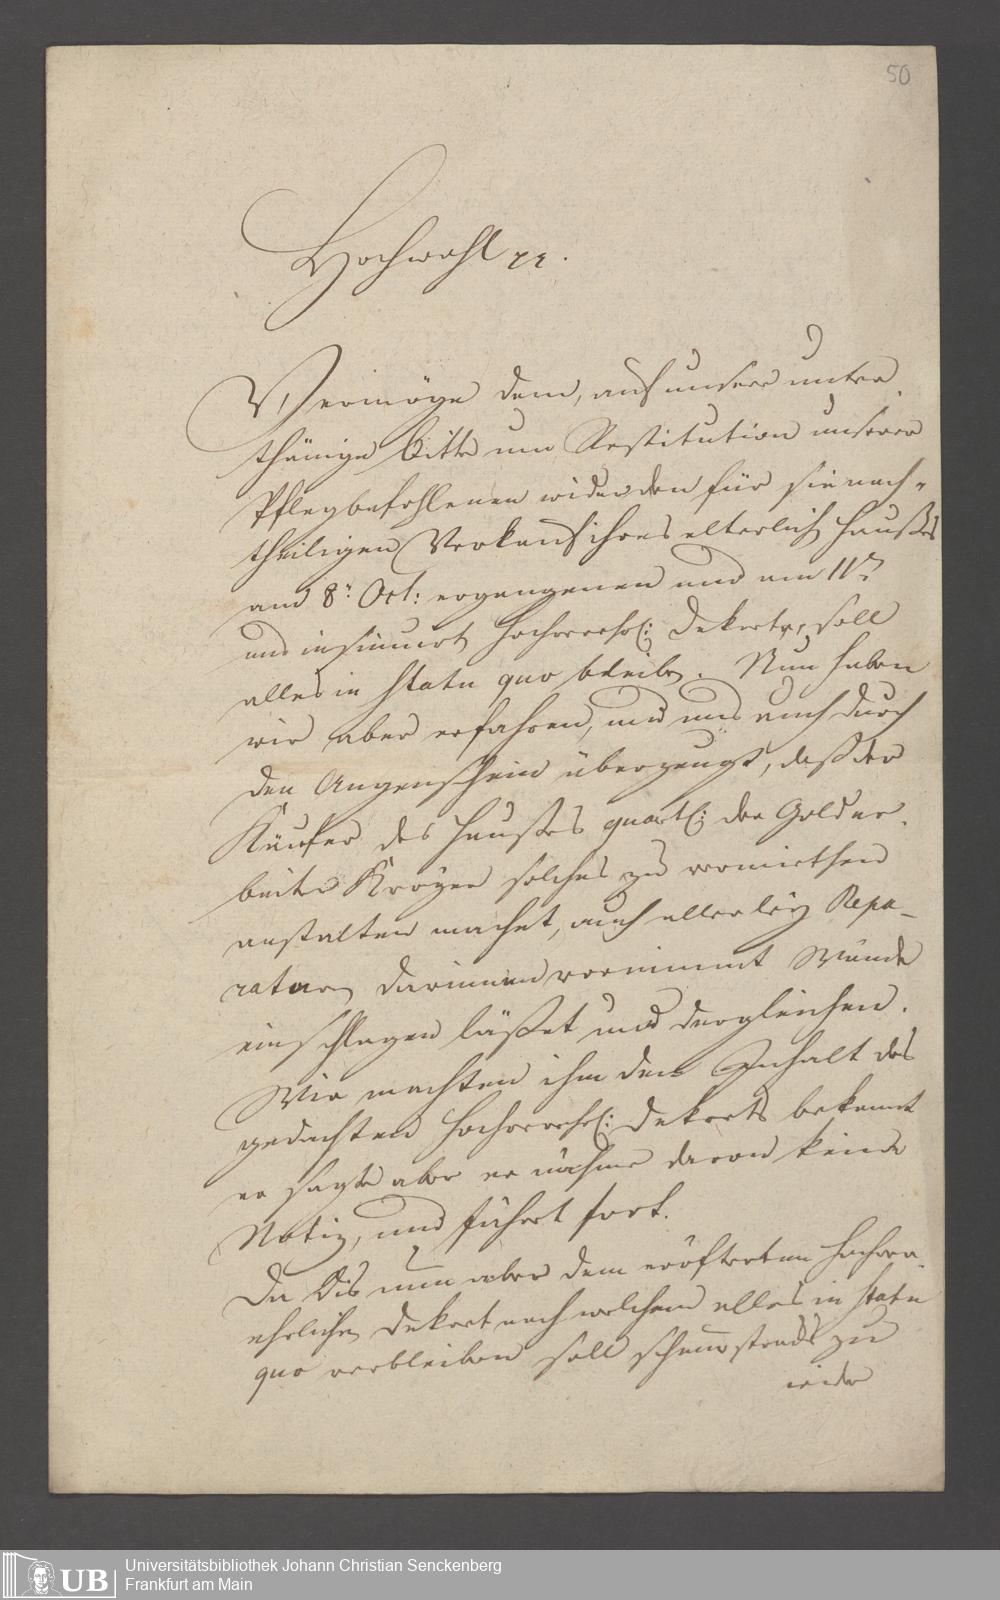 50
Hochwohl pp.
Vermöge dem, auf unsere unter
thänige bitte um Restitution unserer
Pflegbefohlenen wider den für sie nach-
theiligen Verkauf ihres elterlich Haußes
am 8t Oct: ergangenen und am 11t
uns insinuirt hochverehrl: Dekrets, soll
alles in statu quo bleiben. Nun haben
wir aber erfahren, und uns auch durch
den Augenschein überzeugt, daß der
Käufer des Haußes quaest: der Goldar-
beiter Kröger solches zu vermiethen
anstalten machet, auch allerley Repa-
raturen darinnen vornimmt Wände
einschlagen läßet und dergleichen.
Wir machten ihm den Inhalt des
gedachten hochverehrl: Dekrets bekannt
er sagte aber er nähme davon keine
Notiz, und fährt fort.
Da dis nun aber dem eröfterten hochver-
ehrlichen Dekret nach welchem alles in statu
quo verbleiben soll schnurstracks zu
wider
Universitätsbibliothek Johann Christian Senckenberg
Frankfurt am Main
UB